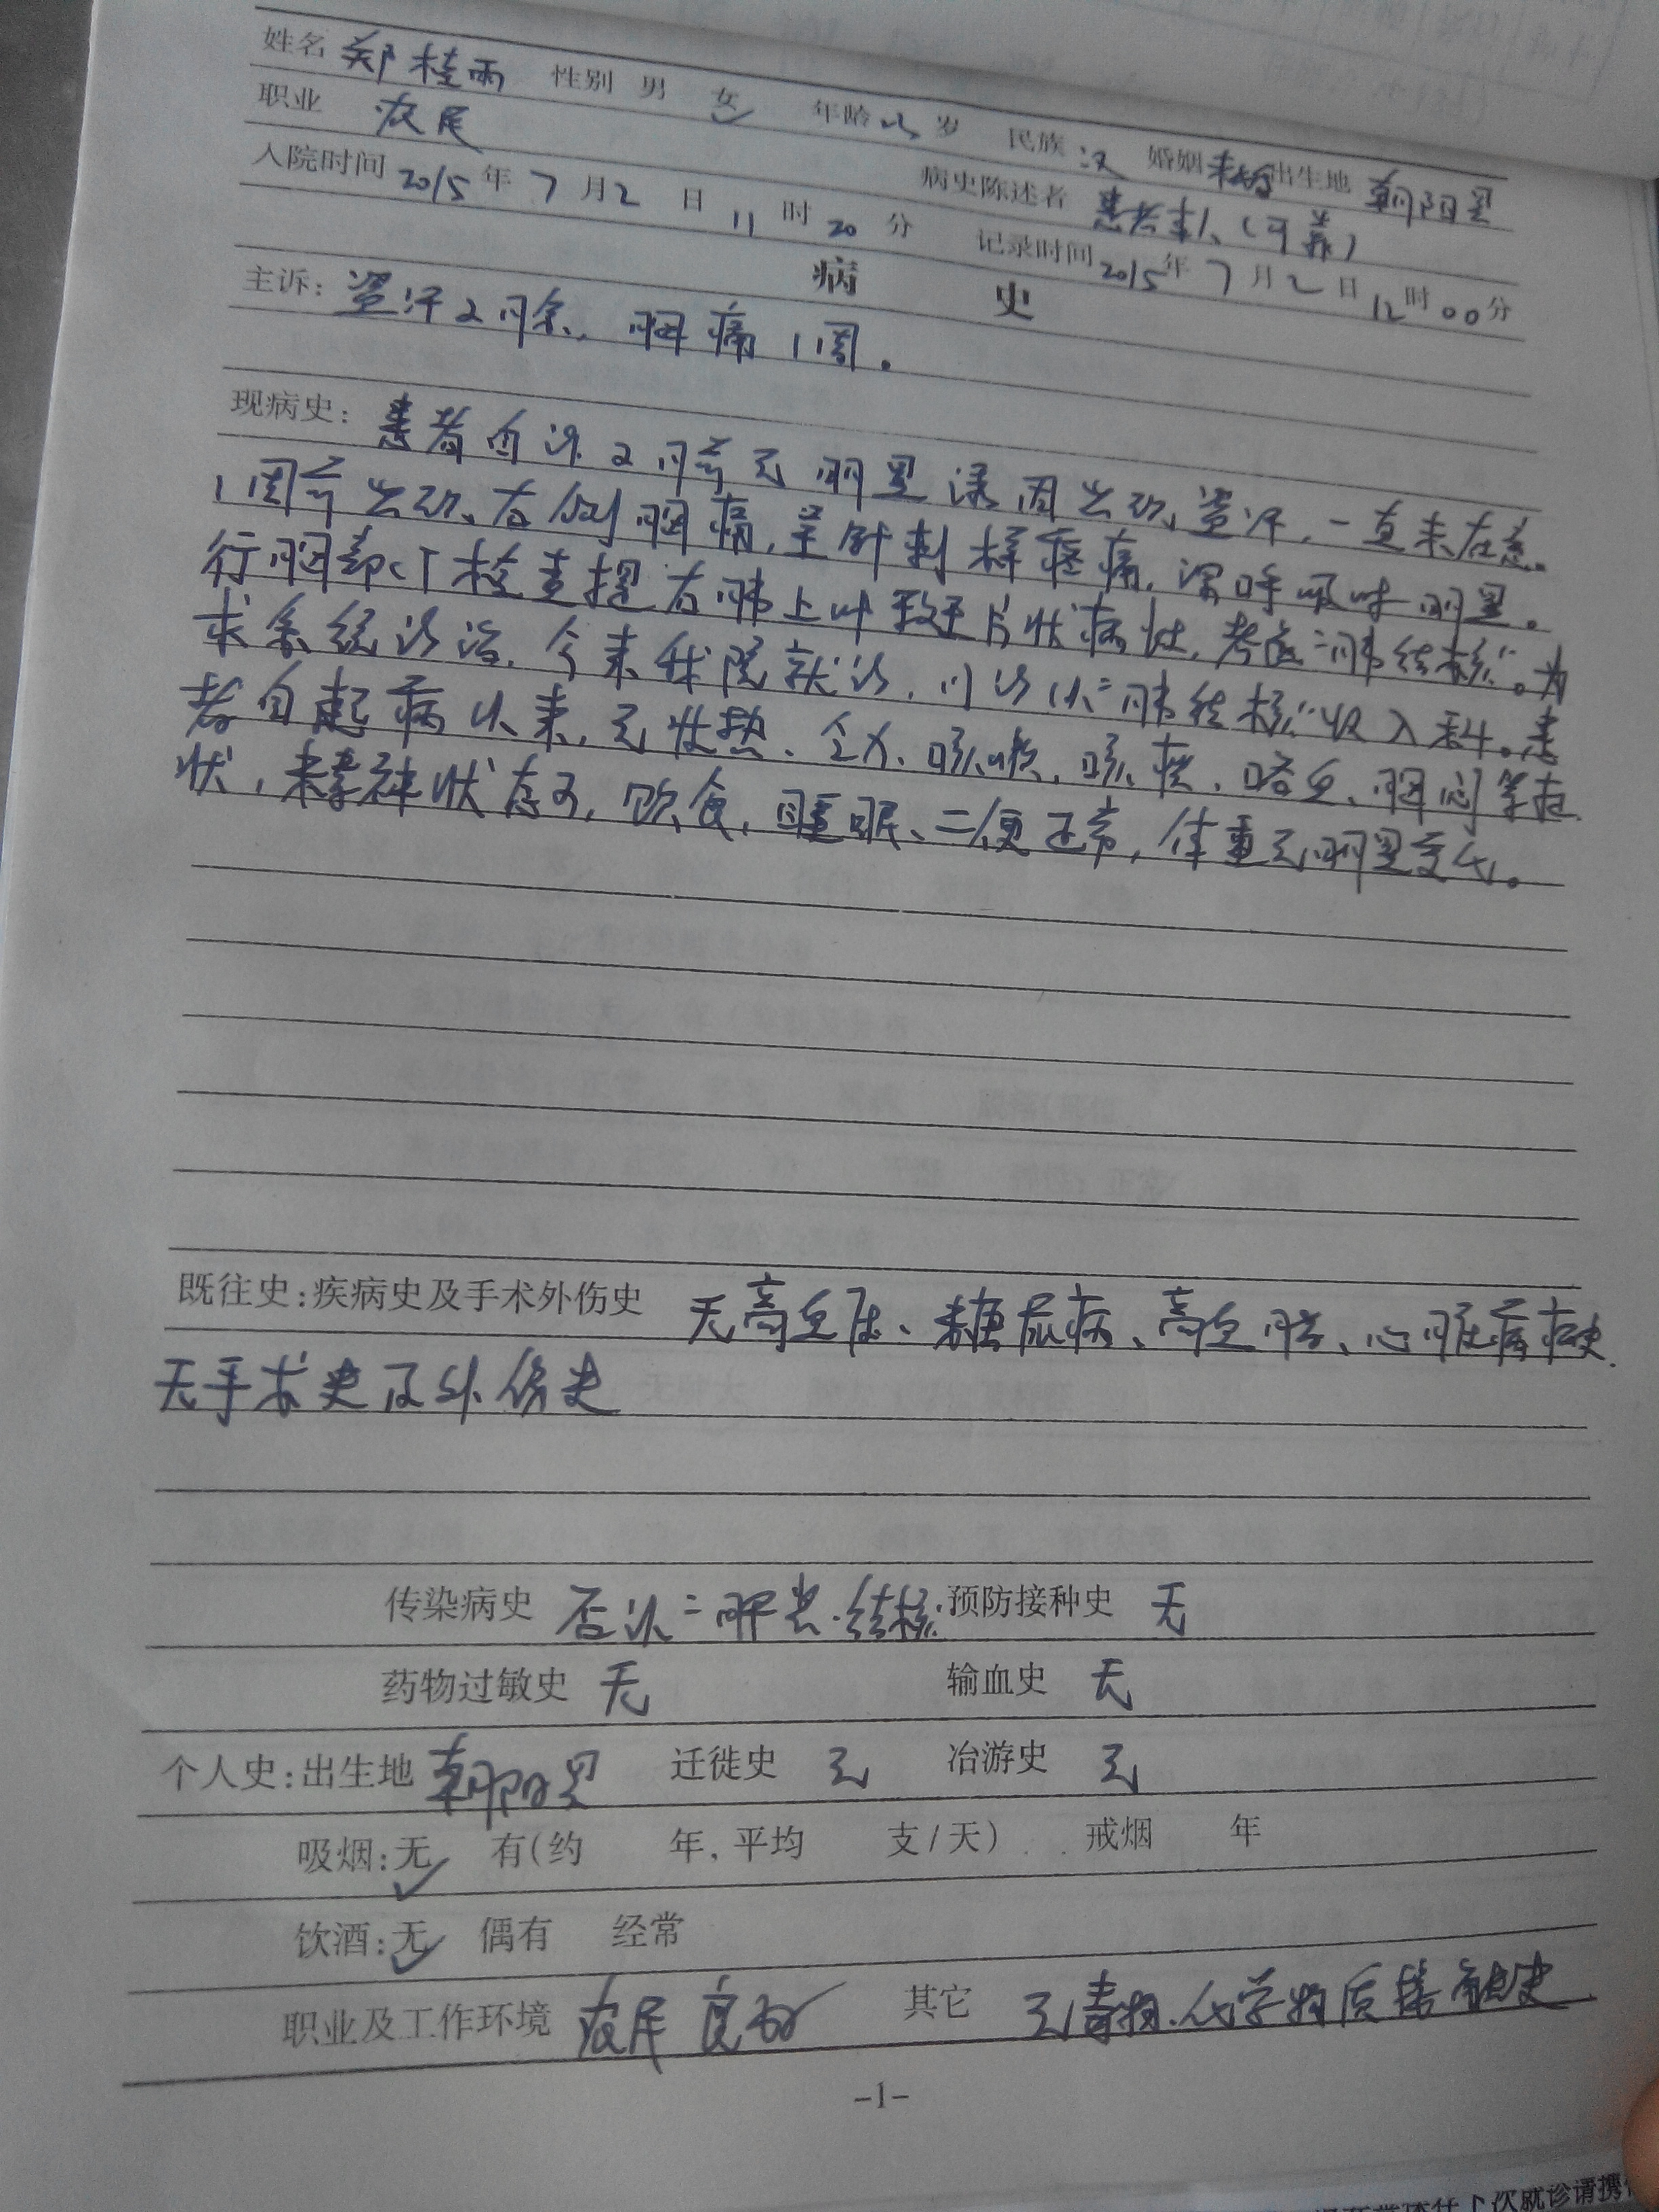 姓名 郑桂雨 性别 男 女✓ 年龄 岁 民族 汉 婚姻 未婚 出生地 朝阳县
职业 农民 病史陈述者 患者本人(可靠)
入院时间 2015年7月2日11时20分 记录时间 2015年7月2日12时00分
病史
主诉: 盗汗2月余,胸痛1周。
现病史: 患者自诉2月前无明显诱因出现盗汗,一直未在意。
1周前出现右侧胸痛,呈针刺样疼痛,深呼吸时明显。
行胸部CT检查提右肺上叶致 片状病灶,考虑“肺结核”。为
求系统诊治,今来我院就诊,门诊以“肺结核”收入科。患
者自起病以来,无发热、乏力、咳嗽、咳痰、咯血、胸闷等症
状,精神状态可,饮食、睡眠、二便正常,体重无明显变化。
既往史:疾病史及手术外伤史 无高血压、糖尿病、高血脂、心脏病病史.
无手术史及外伤史
传染病史 否认“肝炎、结核” 预防接种史 无
药物过敏史 无 输血史 无
个人史:出生地 朝阳县 迁徙史 无 冶游史 无
吸烟:无✓ 有(约 年,平均 支/天) 戒烟 年
饮酒:无✓ 偶有 经常
职业及工作环境 农民 良好 其它 无毒物、化学物质接触史
-1-
下次就诊请携